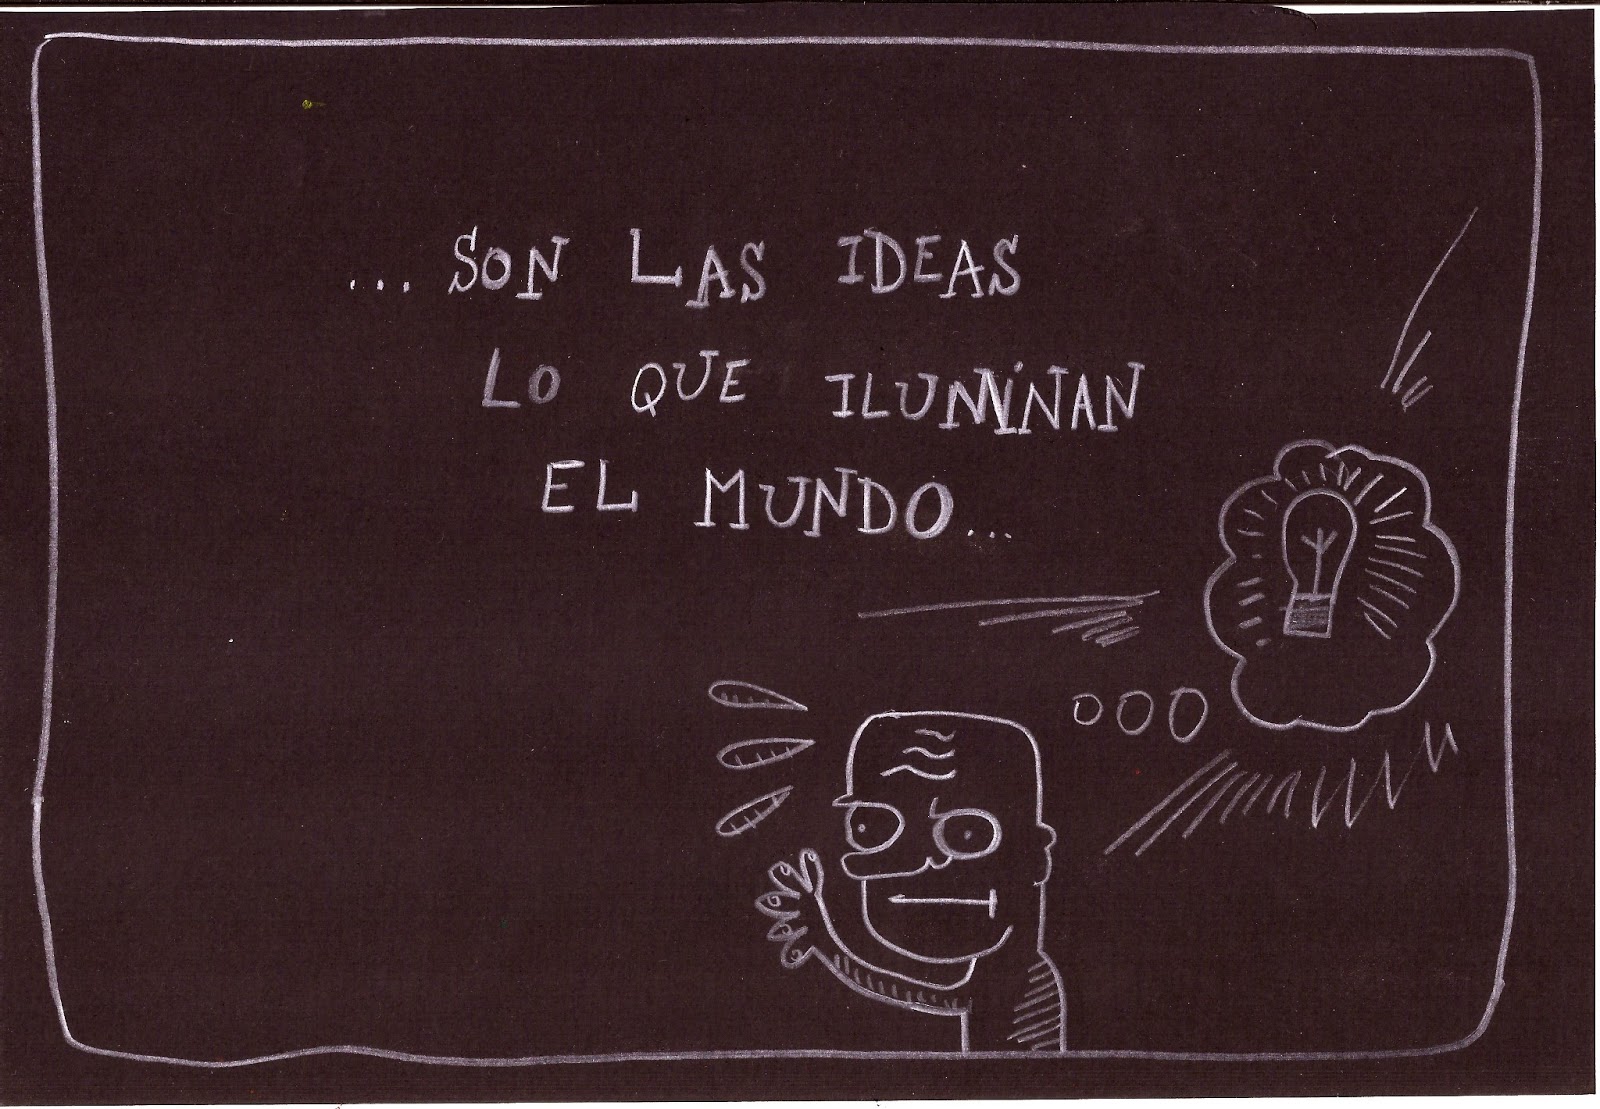 ...SON LAS IDEAS
LO QUE ILUMINAN
EL MUNDO...